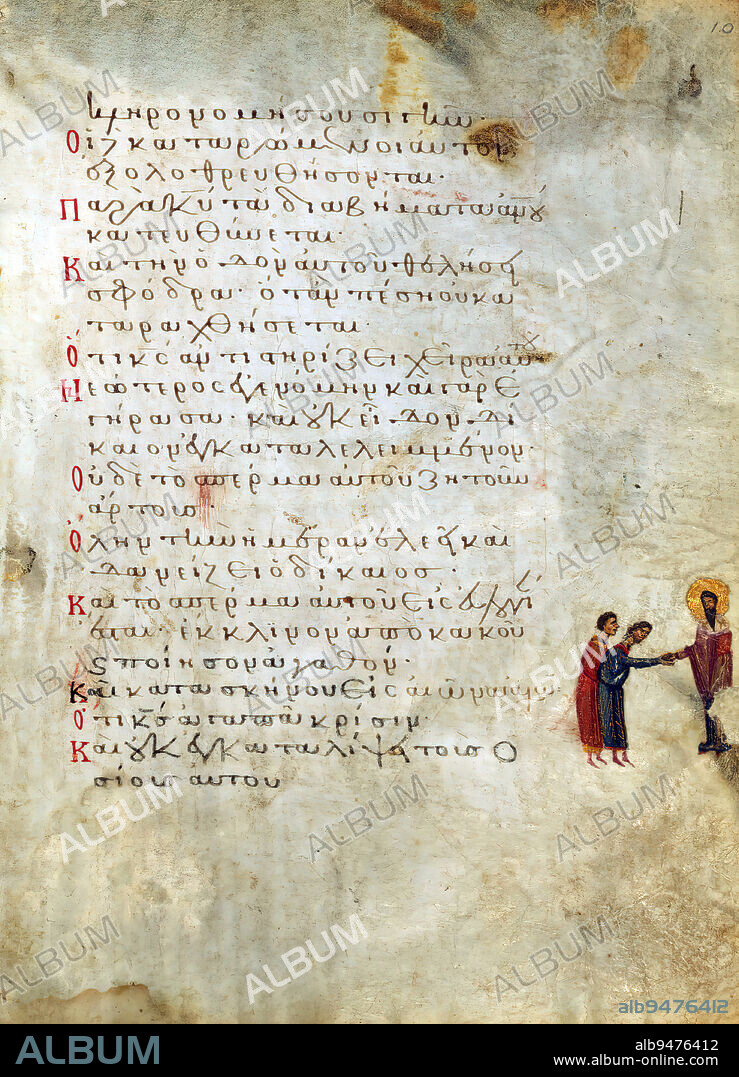 κληρονομήσουσι γῆν·
Οἱ δὲ καταρώμενοι αὐτὸν
ἐξολοθρευθήσονται·
Παρὰ κυ τὰ διαβήματα ἀνου
κατευθύνεται·
Καὶ τὴν ὁδὸν αὐτοῦ θελήσει
σφόδρα· ὅταν πέσῃ οὐ κα
ταραχθήσεται·
Ὅτι κς ἀντιστηρίζει χεῖρα αυτου
Νεώτερος ἐγενόμην καὶ γὰρ ἐ
γήρασα· καὶ οὐκ εἶδον δί
καιον ἐγκαταλελειμμένον·
Οὐδὲ τὸ σπέρμα αὐτοῦ ζητοῦν
ἄρτους·
Ὅλην τὴν ἡμέραν ἐλεεῖ καὶ
δανείζει ὁ δίκαιος·
Καὶ τὸ σπέρμα αὐτοῦ εἰς εὐλογί
ἔσται· ἔκκλινον ἀπὸ κακοῦ
ϗ ποίησον ἀγαθόν·
Καὶ κατασκήνου εἰς αἰῶνα
Ὅτι κς ἀγαπᾷ κρίσιν·
Καὶ οὐκ ἐγκαταλείψει τοὺς ὁ
σίους αὐτοῦ
10
alb9476412
ALBUM
alb9476412
www.album-online.com